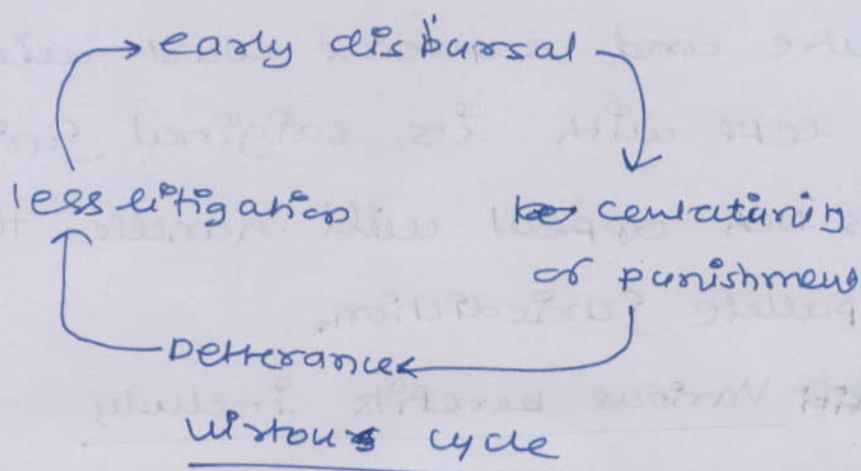 early disbursal
less litigation
certainity
of punishment
Detterance
virtous cycle